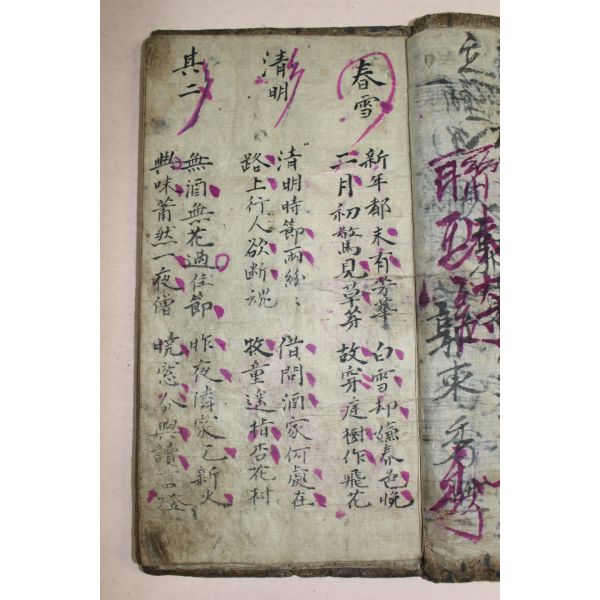 春雪
新年都未有芳華 白雪却嫌春色晚
二月初驚見草芽 故穿庭樹作飛花
清明
清明時節雨紛〻 借問酒家何處在
路上行人欲断魂 牧童遥指杏花村
其二
無酒無花過佳節 昨夜隣家乞新火
興味蕭然一夜僧 曉窓分與讀
東